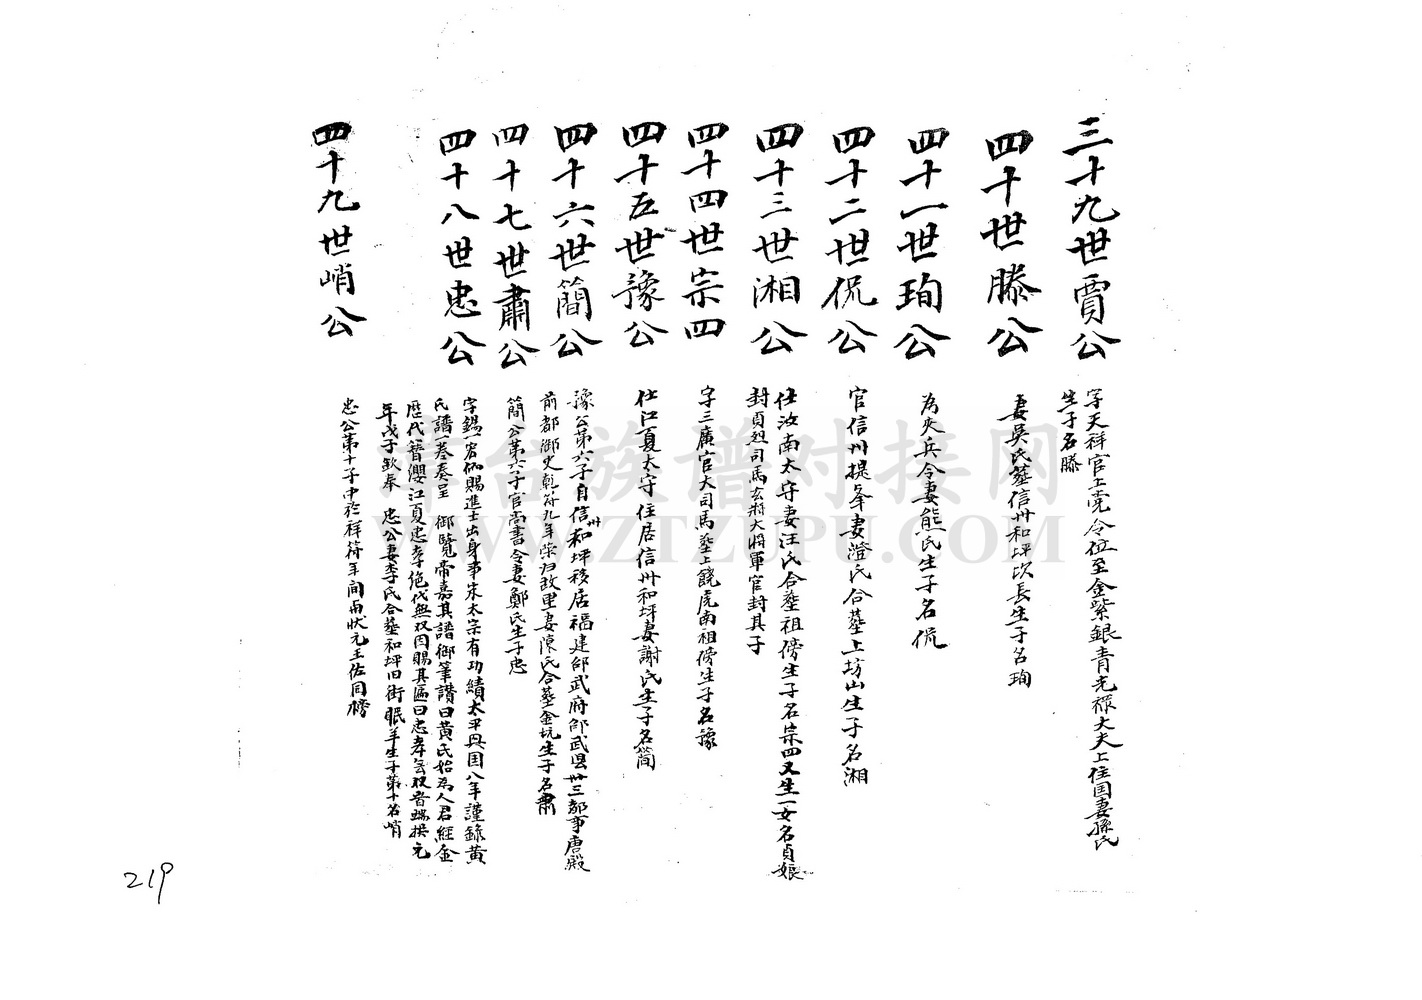 三十九世賈公
字天祥官上党令位至金紫銀青光祿大夫上住国妻孫氏
生子名滕
四十世滕公
妻吳氏葬信卅和坪坎長生子名珣
四十一世珣公
為夾兵令妻熊氏生子名侃
四十二世侃公
官信州提峯妻澄氏合葬上坊山生子名湘
四十三世湘公
仕汝南太守妻汪氏合葬祖傍生子名宗四又生一女名貞娘
封貞烈司馬玄將大將軍官封其子
四十四世宗四
字三廣官大司馬葬上饒虎南祖傍生子名豫
四十五世豫公
仕江夏太守住居信卅和坪妻謝氏生子名簡
四十六世簡公
豫公第六子自信卅和坪移居福建邵武府邵武县卅三都事唐殿
前都御史乾符九年荣归故里妻陳氏合葬金坑生子名肅
四十七世肅公
簡公第六子官尚書令妻鄭氏生子忠
四十八世忠公
字錫一宕仙賜進士出身事宋太宗有功績太平兴国八年謹錄黄
氏譜一卷奏呈 御覽帝嘉其譜御筆讚曰黄氏始為人君經金
歷代簪纓江夏忠孝絶代無双因賜其匾曰忠孝無双晋端拱元
年戊子欽奉 忠公妻李氏合葬和坪旧街眠羊生子第十名峭
四十九世峭公
忠公第十子中於祥符年间甬状元王佐同榜
219
章台族谱对接网
WWW.ZTZUPU.COM